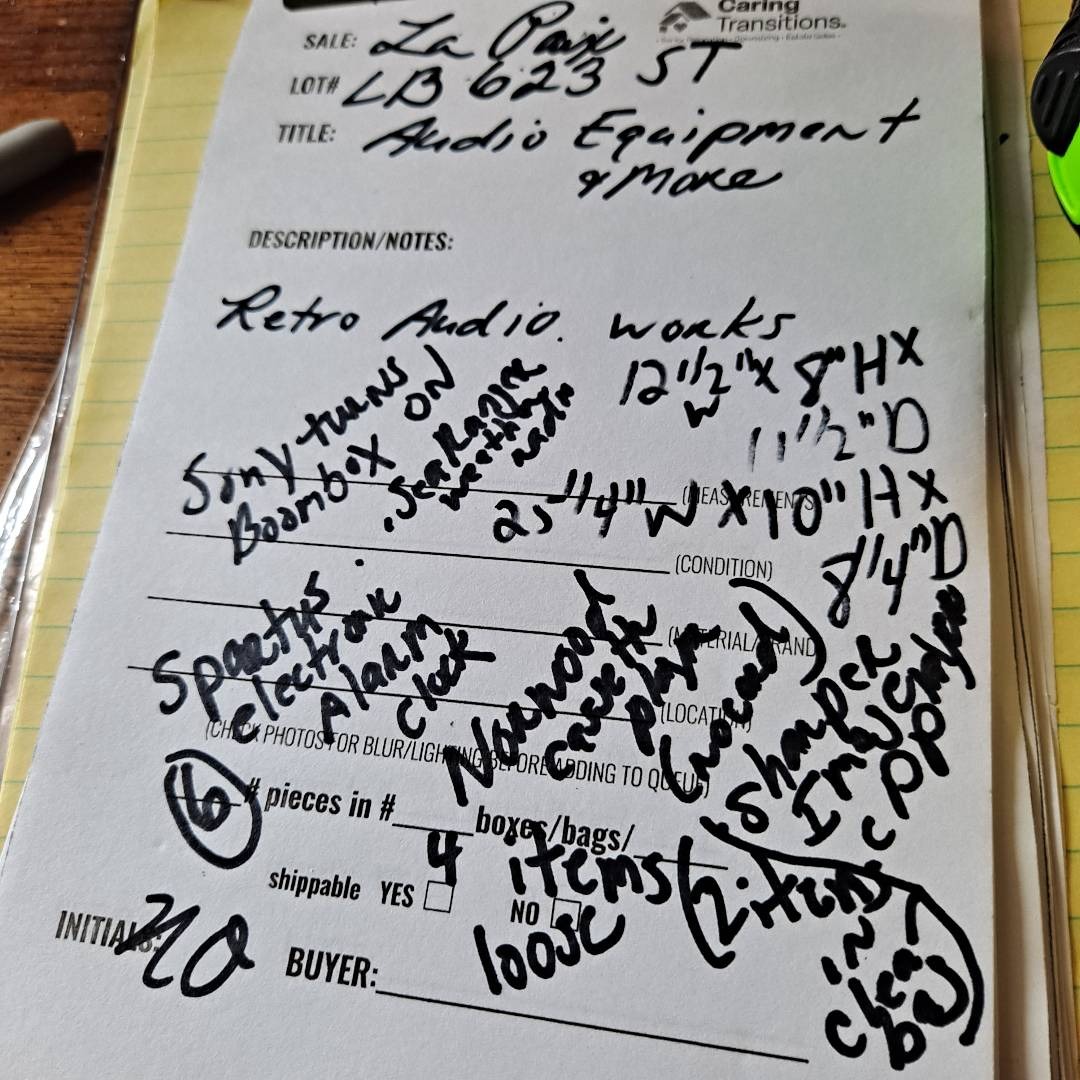 Caring
Transitions.
SALE: La Paix
LOT# LB 623 ST
TITLE: Audio Equipment
& More
DESCRIPTION/NOTES:
Retro Audio. works
12 1/2" W X 8" H X
11 1/2" D
Sony turns
Boombox ON
. Sea Ranger
weather
radio
(MEASUREMENTS)
25 1/4" W X 10" H X
8 1/4" D
(CONDITION)
Spartus
electronic
Alarm
clock
Norwood
player
(MATERIAL/BRAND)
(LOCATION)
Sharper
Image
(CHECK PHOTOS FOR BLUR/LIGHTING BEFORE ADDING TO QUEUE)
6 # pieces in # boxes/bags/
4 items
loose
(2 items
in
clear
bag)
shippable YES NO
INITIALS:
BUYER: